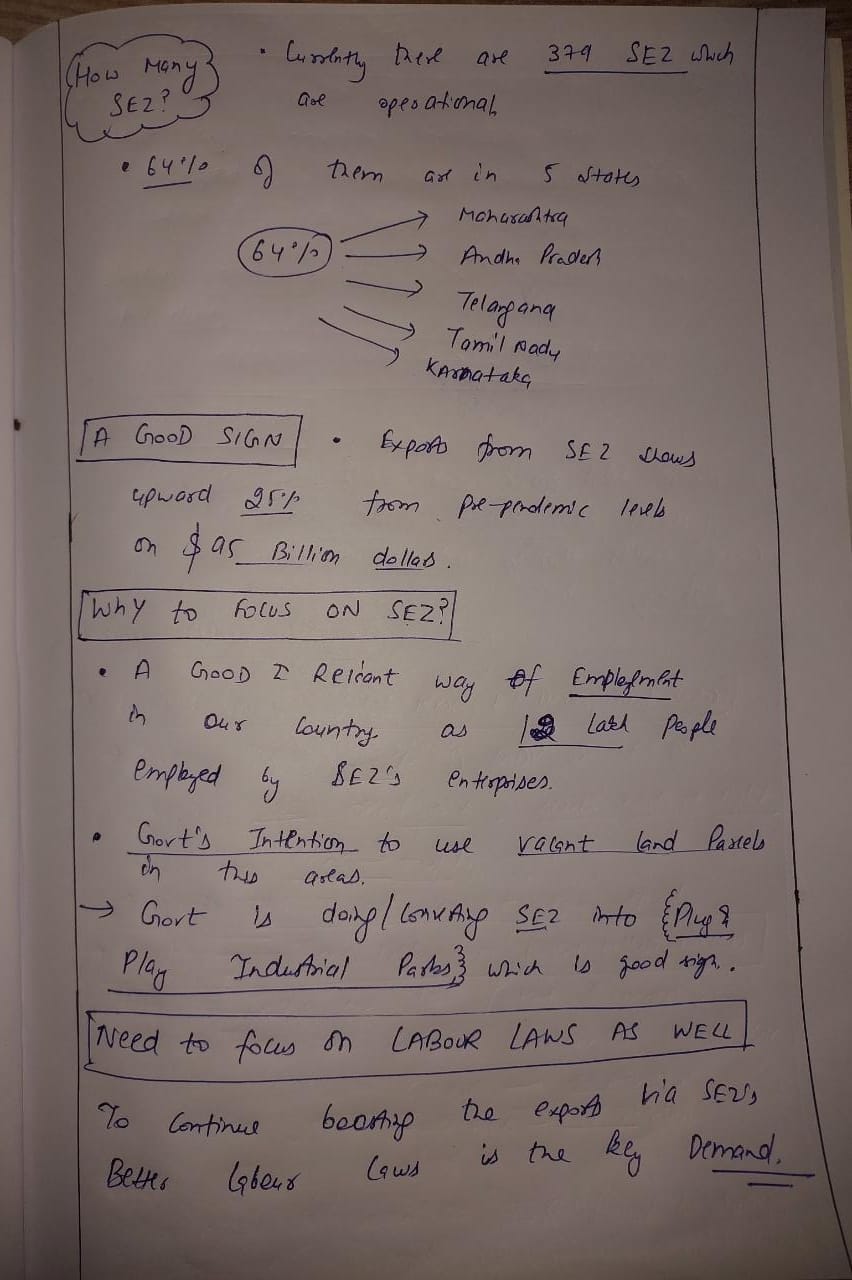 How Many SEZ?
• Currently there are 379 SEZ which
are operational
• 64% of them are in 5 states
64%
Maharashtra
Andha Pradesh
Telangana
Tamil Nadu
Karnataka
A GOOD SIGN • Exports from SEZ shows
upward 25% from pre-pendemic levels
on $ 95 Billion dollars.
Why to FOCUS ON SEZ?
• A GOOD & Reliant way of Employment
in our Country as lakh People
employed by SEZ's enterprises.
• Govt's Intention to use vacant land Parcels
in this areas.
→ Govt is doing/converting SEZ into {Plug &
Play Industrial Parks} which is good sign.
Need to focus on LABOUR LAWS AS WELL
To Continue boosting the exports via SEZ's,
Better labour laws is the key Demand.